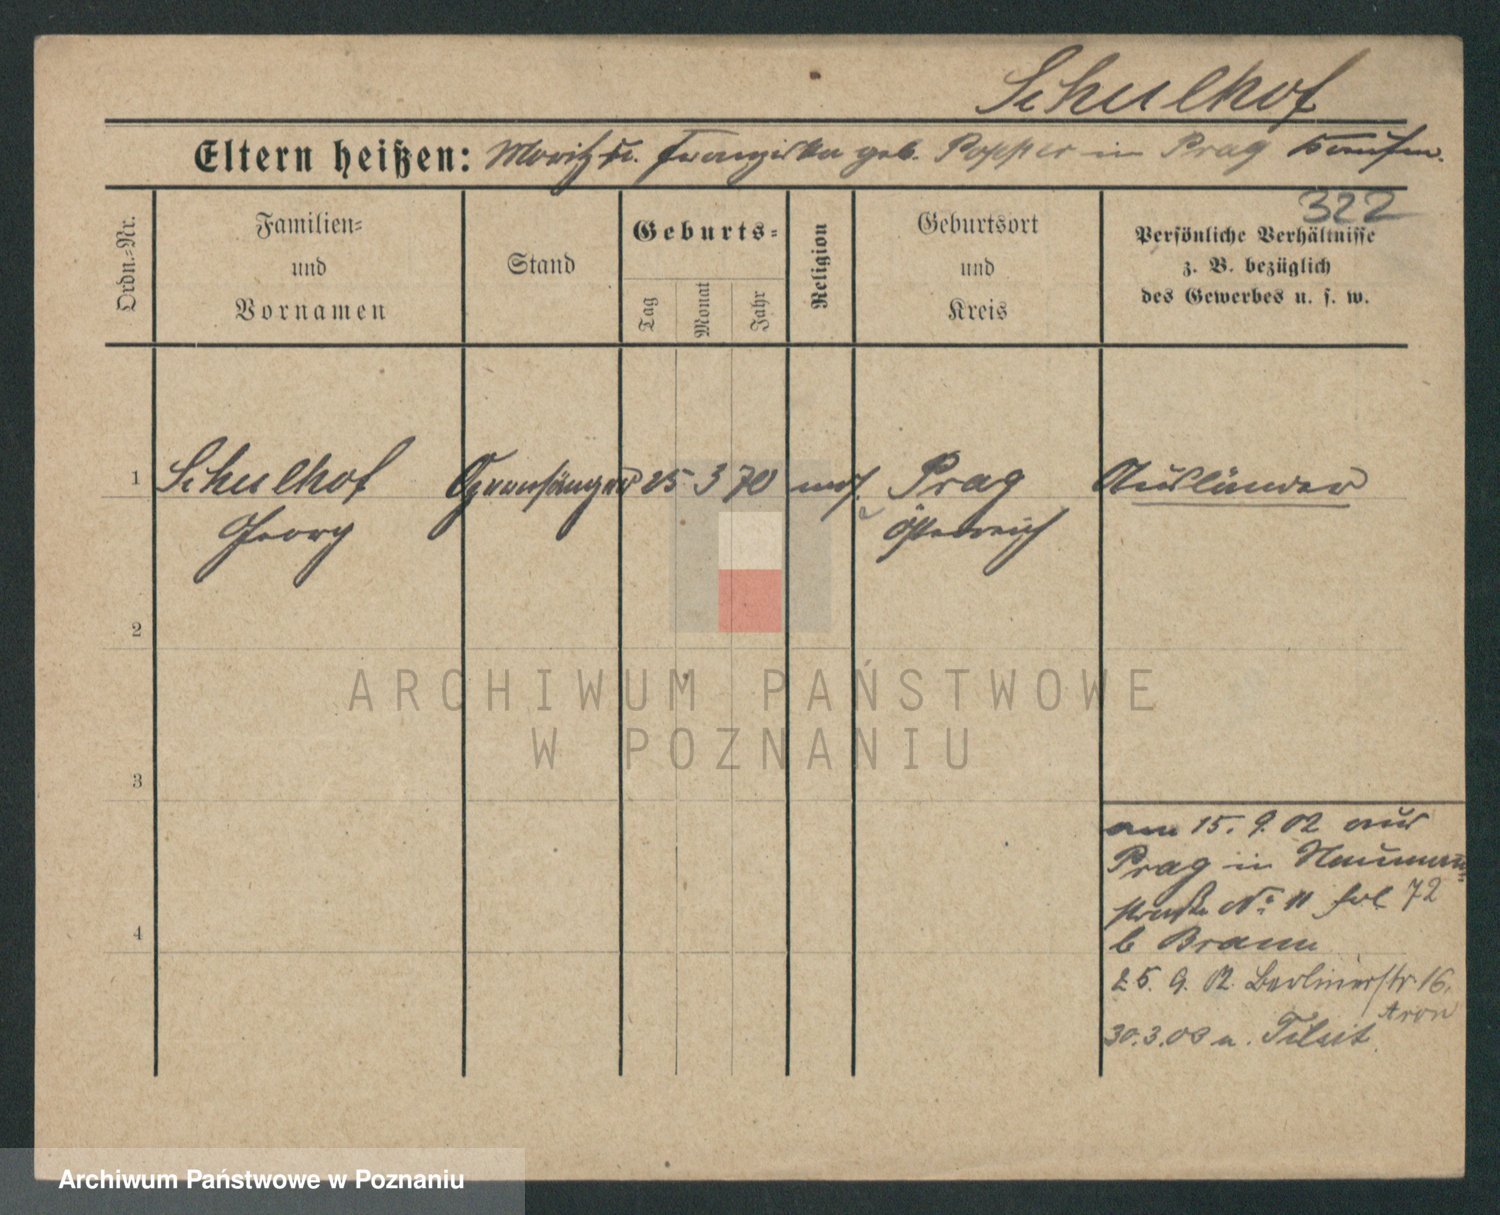 Schulhof
Eltern heißen: Moritz u. Franziska geb. Popper in Prag Kaufm.
322
Ordn.-Nr.
Familien-
und
Vornamen
Stand
Geburts-
Tag
Monat
Jahr
Religion
Geburtsort
und
Kreis
Persönliche Verhältnisse
z. B. bezüglich
des Gewerbes u. s. w.
1 Schulhof Opernsänger 25 3 70 mos. Prag Ausländer
Georg Österreich
2
ARCHIWUM PAŃSTWOWE
W POZNANIU
3
am 15. 9. 02 aus
Prag in Naumann-
straße No. 11 fol. 72
4
b Braun
25. 9. 02. Berlinerstr 16.
Aron
30.3.03 n. Tilsit.
Archiwum Państwowe w Poznaniu